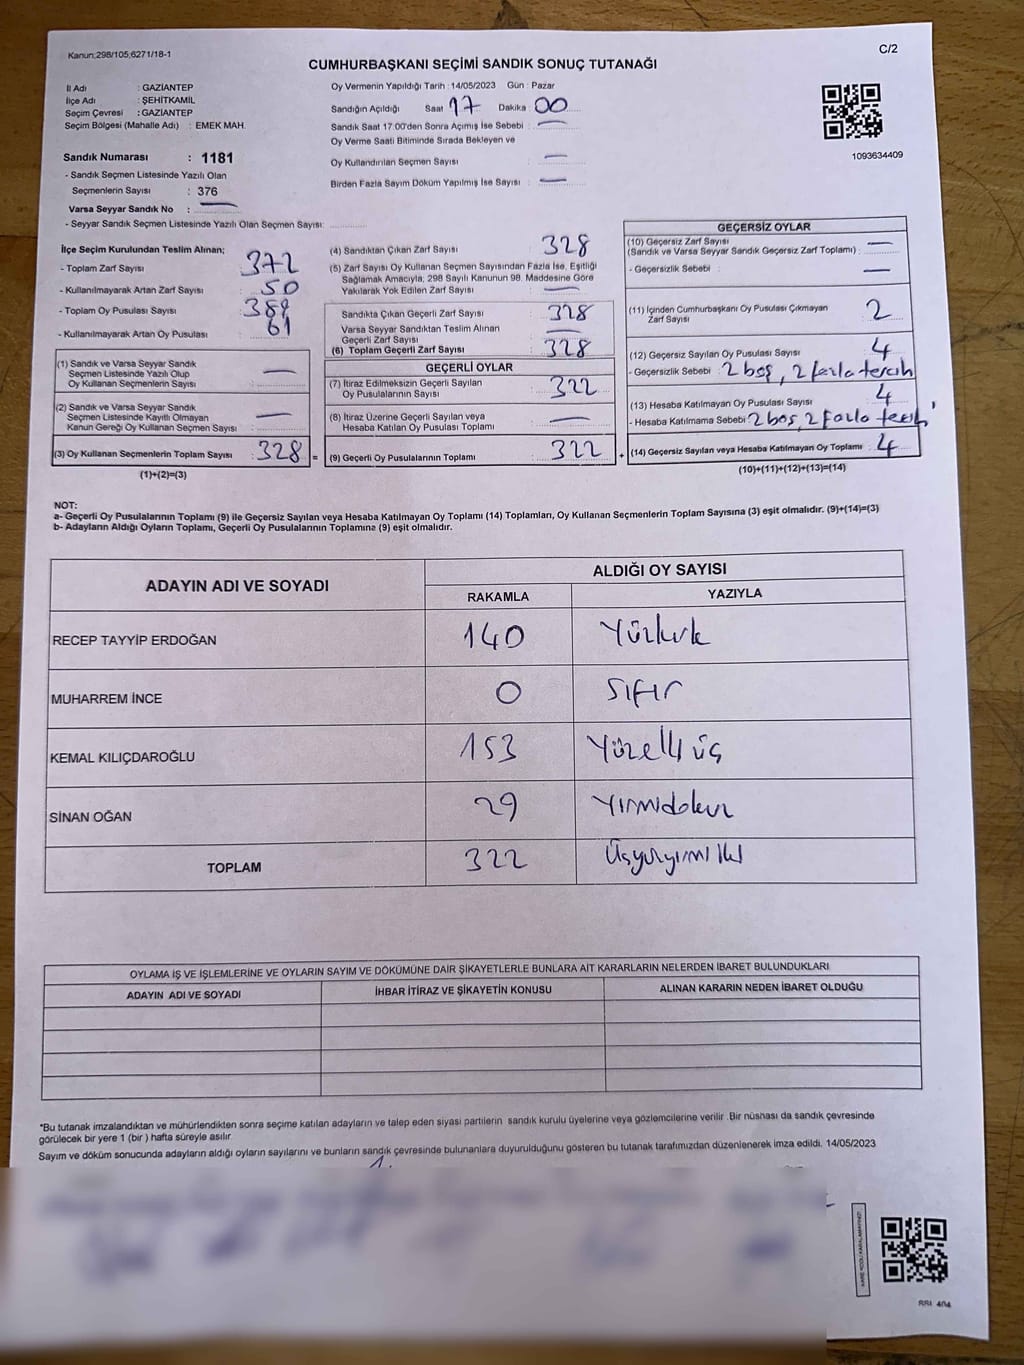 Kanun:298/105;6271/18-1
C/2
CUMHURBAŞKANI SEÇİMİ SANDIK SONUÇ TUTANAĞI
İl Adı : GAZİANTEP
İlçe Adı : ŞEHİTKAMİL
Seçim Çevresi : GAZİANTEP
Seçim Bölgesi (Mahalle Adı) : EMEK MAH.
Sandık Numarası : 1181
- Sandık Seçmen Listesinde Yazılı Olan
Seçmenlerin Sayısı : 376
Varsa Seyyar Sandık No : —
- Seyyar Sandık Seçmen Listesinde Yazılı Olan Seçmen Sayısı:
Oy Vermenin Yapıldığı Tarih : 14/05/2023 Gün : Pazar
Sandığın Açıldığı Saat 17 Dakika : 00
Sandık Saat 17:00'den Sonra Açımış İse Sebebi : —
Oy Verme Saati Bitiminde Sırada Bekleyen ve
Oy Kullandırılan Seçmen Sayısı : —
Birden Fazla Sayım Döküm Yapılmış İse Sayısı : —
1093634409
İlçe Seçim Kurulundan Teslim Alınan;
- Toplam Zarf Sayısı : 372
- Kullanılmayarak Artan Zarf Sayısı : 50
- Toplam Oy Pusulası Sayısı : 389
- Kullanılmayarak Artan Oy Pusulası : 61
(1) Sandık ve Varsa Seyyar Sandık
Seçmen Listesinde Yazılı Olup
Oy Kullanan Seçmenlerin Sayısı : —
(2) Sandık ve Varsa Seyyar Sandık
Seçmen Listesinde Kayıtlı Olmayan
Kanun Gereği Oy Kullanan Seçmen Sayısı : —
(3) Oy Kullanan Seçmenlerin Toplam Sayısı : 328 =
(1)+(2)=(3)
(4) Sandıktan Çıkan Zarf Sayısı : 328
(5) Zarf Sayısı Oy Kullanan Seçmen Sayısından Fazla İse, Eşitliği
Sağlamak Amacıyla, 298 Sayılı Kanunun 98. Maddesine Göre
Yakılarak Yok Edilen Zarf Sayısı : —
Sandıkta Çıkan Geçerli Zarf Sayısı : 328
Varsa Seyyar Sandıktan Teslim Alınan
Geçerli Zarf Sayısı : —
(6) Toplam Geçerli Zarf Sayısı : 328
GEÇERLİ OYLAR
(7) İtiraz Edilmeksizin Geçerli Sayılan
Oy Pusulalarının Sayısı : 322
(8) İtiraz Üzerine Geçerli Sayılan veya
Hesaba Katılan Oy Pusulası Toplamı : —
(9) Geçerli Oy Pusulalarının Toplamı : 322 +
GEÇERSİZ OYLAR
(10) Geçersiz Zarf Sayısı
(Sandık ve Varsa Seyyar Sandık Geçersiz Zarf Toplamı) : —
- Geçersizlik Sebebi : —
(11) İçinden Cumhurbaşkanı Oy Pusulası Çıkmayan
Zarf Sayısı : 2
(12) Geçersiz Sayılan Oy Pusulası Sayısı : 4
- Geçersizlik Sebebi : 2 boş, 2 fazla tercih
(13) Hesaba Katılmayan Oy Pusulası Sayısı : 4
- Hesaba Katılmama Sebebi : 2 boş, 2 fazla tercih
(14) Geçersiz Sayılan veya Hesaba Katılmayan Oy Toplamı : 4
(10)+(11)+(12)+(13)=(14)
NOT:
a- Geçerli Oy Pusulalarının Toplamı (9) ile Geçersiz Sayılan veya Hesaba Katılmayan Oy Toplamı (14) Toplamları, Oy Kullanan Seçmenlerin Toplam Sayısına (3) eşit olmalıdır. (9)+(14)=(3)
b- Adayların Aldığı Oyların Toplamı, Geçerli Oy Pusulalarının Toplamına (9) eşit olmalıdır.
ADAYIN ADI VE SOYADI
ALDIĞI OY SAYISI
RAKAMLA YAZIYLA
RECEP TAYYİP ERDOĞAN 140 Yüzkırk
MUHARREM İNCE 0 sıfır
KEMAL KILIÇDAROĞLU 153 Yüzelli üç
SİNAN OĞAN 29 Yirmidokuz
TOPLAM 322 Üçyüzyirmi iki
OYLAMA İŞ VE İŞLEMLERİNE VE OYLARIN SAYIM VE DÖKÜMÜNE DAİR ŞİKAYETLERLE BUNLARA AİT KARARLARIN NELERDEN İBARET BULUNDUKLARI
ADAYIN ADI VE SOYADI İHBAR İTİRAZ VE ŞİKAYETİN KONUSU ALINAN KARARIN NEDEN İBARET OLDUĞU
*Bu tutanak imzalandıktan ve mühürlendikten sonra seçime katılan adayların ve talep eden siyasi partilerin sandık kurulu üyelerine veya gözlemcilerine verilir. Bir nüshası da sandık çevresinde
görülecek bir yere 1 (bir ) hafta süreyle asılır.
Sayım ve döküm sonucunda adayların aldığı oyların sayılarını ve bunların sandık çevresinde bulunanlara duyurulduğunu gösteren bu tutanak tarafımızdan düzenlenerek imza edildi. 14/05/2023